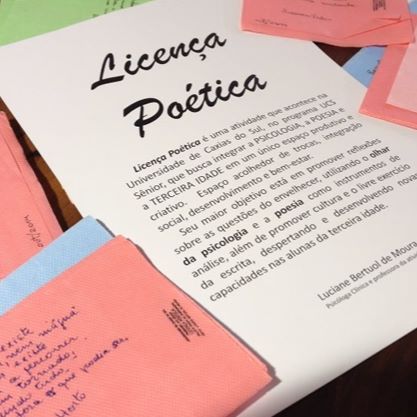 Licença
Poética
Licença Poética é uma atividade que acontece na
Universidade de Caxias do Sul, no programa UCS
Sênior, que busca integrar a PSICOLOGIA, a POESIA e
a TERCEIRA IDADE em um único espaço produtivo e
criativo. Espaço acolhedor de trocas, integração
social, desenvolvimento e bem-estar.
Seu maior objetivo está em promover reflexões
sobre as questões do envelhecer, utilizando o olhar
da psicologia e a poesia como instrumentos de
análise, além de promover cultura e o livre exercício
da escrita, despertando e desenvolvendo novas
capacidades nas alunas da terceira idade.
Luciane Bertuol de Moura
Psicóloga Clínica e professora da
existe
nem mágua
existe
a percorrer
tudo